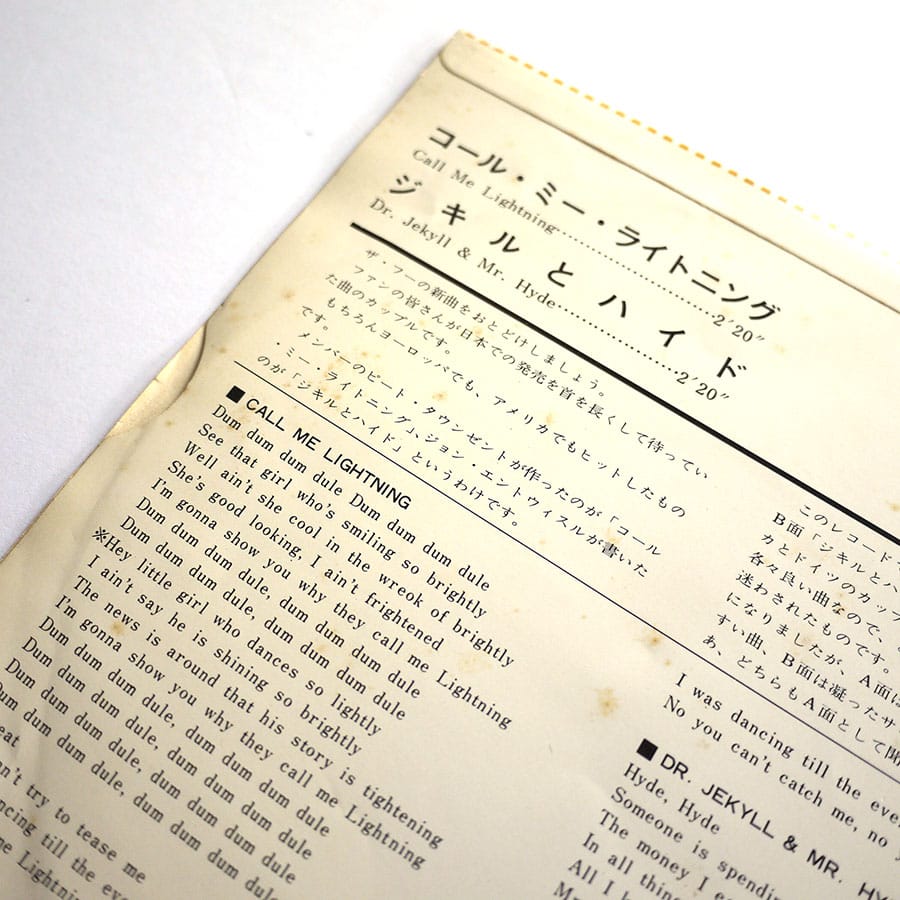 コール・ミー・ライトニング
Call Me Lightning……………………2′20″
ジキルとハイド
Dr. Jekyll & Mr. Hyde……………………2′20″
ザ・フーの新曲をおとどけしましょう。
ファンの皆さんが日本での発売を首を長くして待ってい
た曲のカップルです。
もちろんヨーロッパでも、アメリカでもヒットしたもの
です。
メンバーのピート・タウンゼントが作ったのが「コール
・ミー・ライトニング」、ジョン・エントウィスルが書いた
のが「ジキルとハイド」というわけです。
このレコード
B面「ジキルとハ
カとドイツのカップ
各々良い曲なので、
迷わされたものです。
になりましたが、A面は
すい曲、B面は凝ったサ
あ、どちらもA面として聞
■CALL ME LIGHTNING
Dum dum dum dule Dum dum dum dule
See that girl who's smiling so brightly
Well ain't she cool in the wreok of brightly
She's good looking, I ain't frightened
I'm gonna show you why they call me Lightning
Dum dum dum dule, dum dum dum dule
Dum dum dum dule, dum dum dum dule
※Hey little girl who dances so lightly
I ain't say he is shining so brightly
The news is around that his story is tightening
I'm gonna show you why they call me Lightning
Dum dum dum dule, dum dum dum dule
Dum dum dum dule, dum dum dum dule
Dum dum dum dule, dum dum dum dule
Dum dum dum dule, dum dum dum dule
eat
n't try to tease me
ncing till the eve
me Lightning
I was dancing till the eve
No you can't catch me, no y
■DR. JEKYLL & MR. HY
Hyde, Hyde
Someone is spendi
The money I e
In all thing
All I
Mr